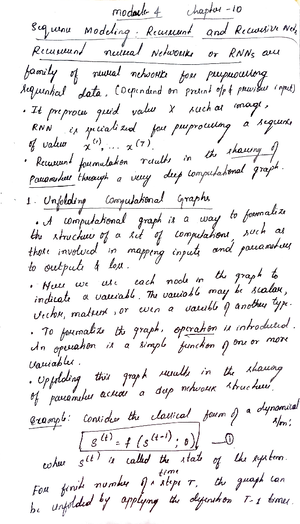 Module 4 Chapter - 10
Sequence Modeling: Recurrent and Recursive Nets
Recurrent neural networks or RNNs are
family of neural networks for preprocessing
sequential data. (Dependent on present o/p & previous input)
• It preprocess grid value X such as image,
RNN is specialized for preprocessing a sequence
of value x⁽¹⁾, ... x(τ).
• Recurrent formulation results in the sharing of
parameters through a very deep computational graph.
1. Unfolding Computational Graphs
• A computational graph is a way to formalize
the structure of a set of computations, such as
those involved in mapping inputs and parameters
to outputs & loss.
• Here we use each node in the graph to
indicate a variable. The variable may be scalar,
vector, matrix, or even a variable of another type.
• To formalize the graph, operation is introduced.
An operation is a simple function of one or more
variables.
• Unfolding this graph results in the sharing
of parameters across a deep network structure.
Example: Consider the classical form of a dynamical
s/m:
S⁽ᵗ⁾ = f (S⁽ᵗ⁻¹⁾; θ) — ①
where S⁽ᵗ⁾ is called the state of the system.
For finite number of time steps τ, the graph can
be unfolded by applying the definition τ-1 times.